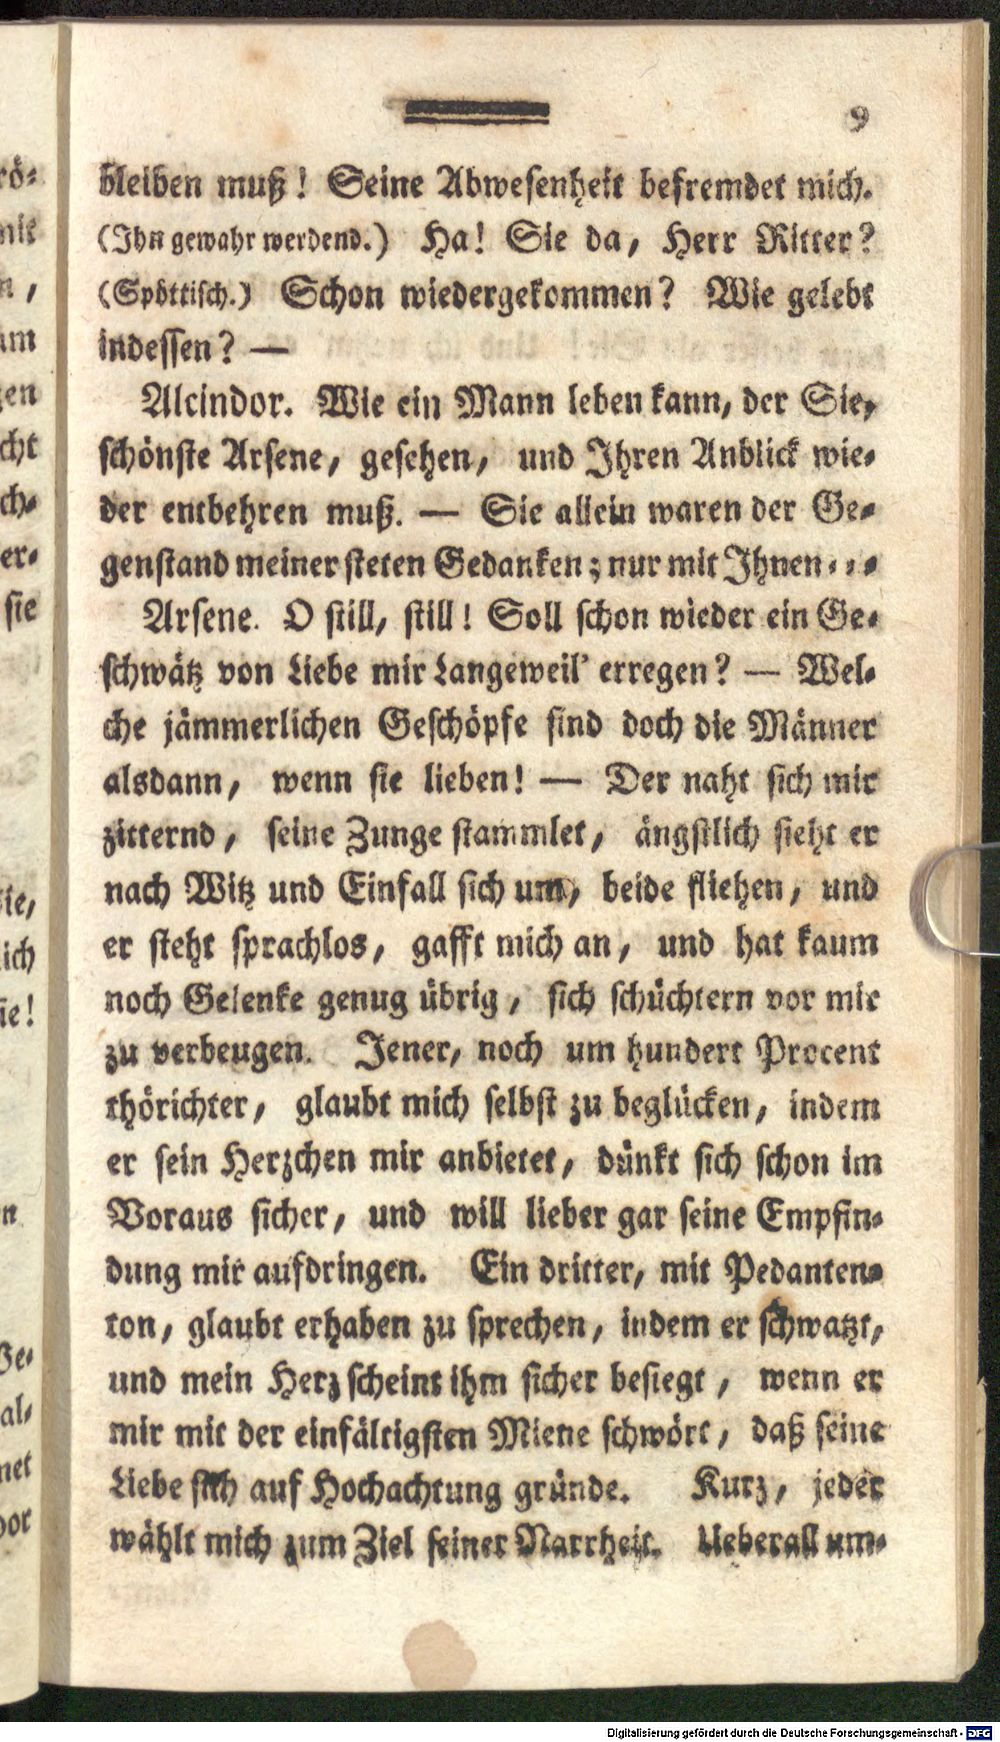 9
bleiben muß! Seine Abwesenheit befremdet mich.
(Ihn gewahr werdend.) Ha! Sie da, Herr Ritter?
(Spöttisch.) Schon wiedergekommen? Wie gelebt
indessen? —
Alcindor. Wie ein Mann leben kann, der Sie,
schönste Arsene, gesehen, und Ihren Anblick wie-
der entbehren muß. — Sie allein waren der Ge-
genstand meiner steten Gedanken; nur mit Ihnen - - -
Arsene. O still, still! Soll schon wieder ein Ge-
schwätz von Liebe mir Langeweil' erregen? — Wel-
che jämmerlichen Geschöpfe sind doch die Männer
alsdann, wenn sie lieben! — Der naht sich mir
zitternd, seine Zunge stammlet, ängstlich sieht er
nach Witz und Einfall sich um, beide fliehen, und
er steht sprachlos, gafft mich an, und hat kaum
noch Gelenke genug übrig, sich schüchtern vor mir
zu verbeugen. Jener, noch um hundert Procent
thörichter, glaubt mich selbst zu beglücken, indem
er sein Herzchen mir anbietet, dünkt sich schon im
Voraus sicher, und will lieber gar seine Empfin-
dung mir aufdringen. Ein dritter, mit Pedanten-
ton, glaubt erhaben zu sprechen, indem er schwatzt,
und mein Herz scheint ihm sicher besiegt, wenn er
mir mit der einfältigsten Miene schwört, daß seine
Liebe sich auf Hochachtung gründe. Kurz, jeder
wählt mich zum Ziel seiner Narrheit. Ueberall um-
Digitalisierung gefördert durch die Deutsche Forschungsgemeinschaft - DFG